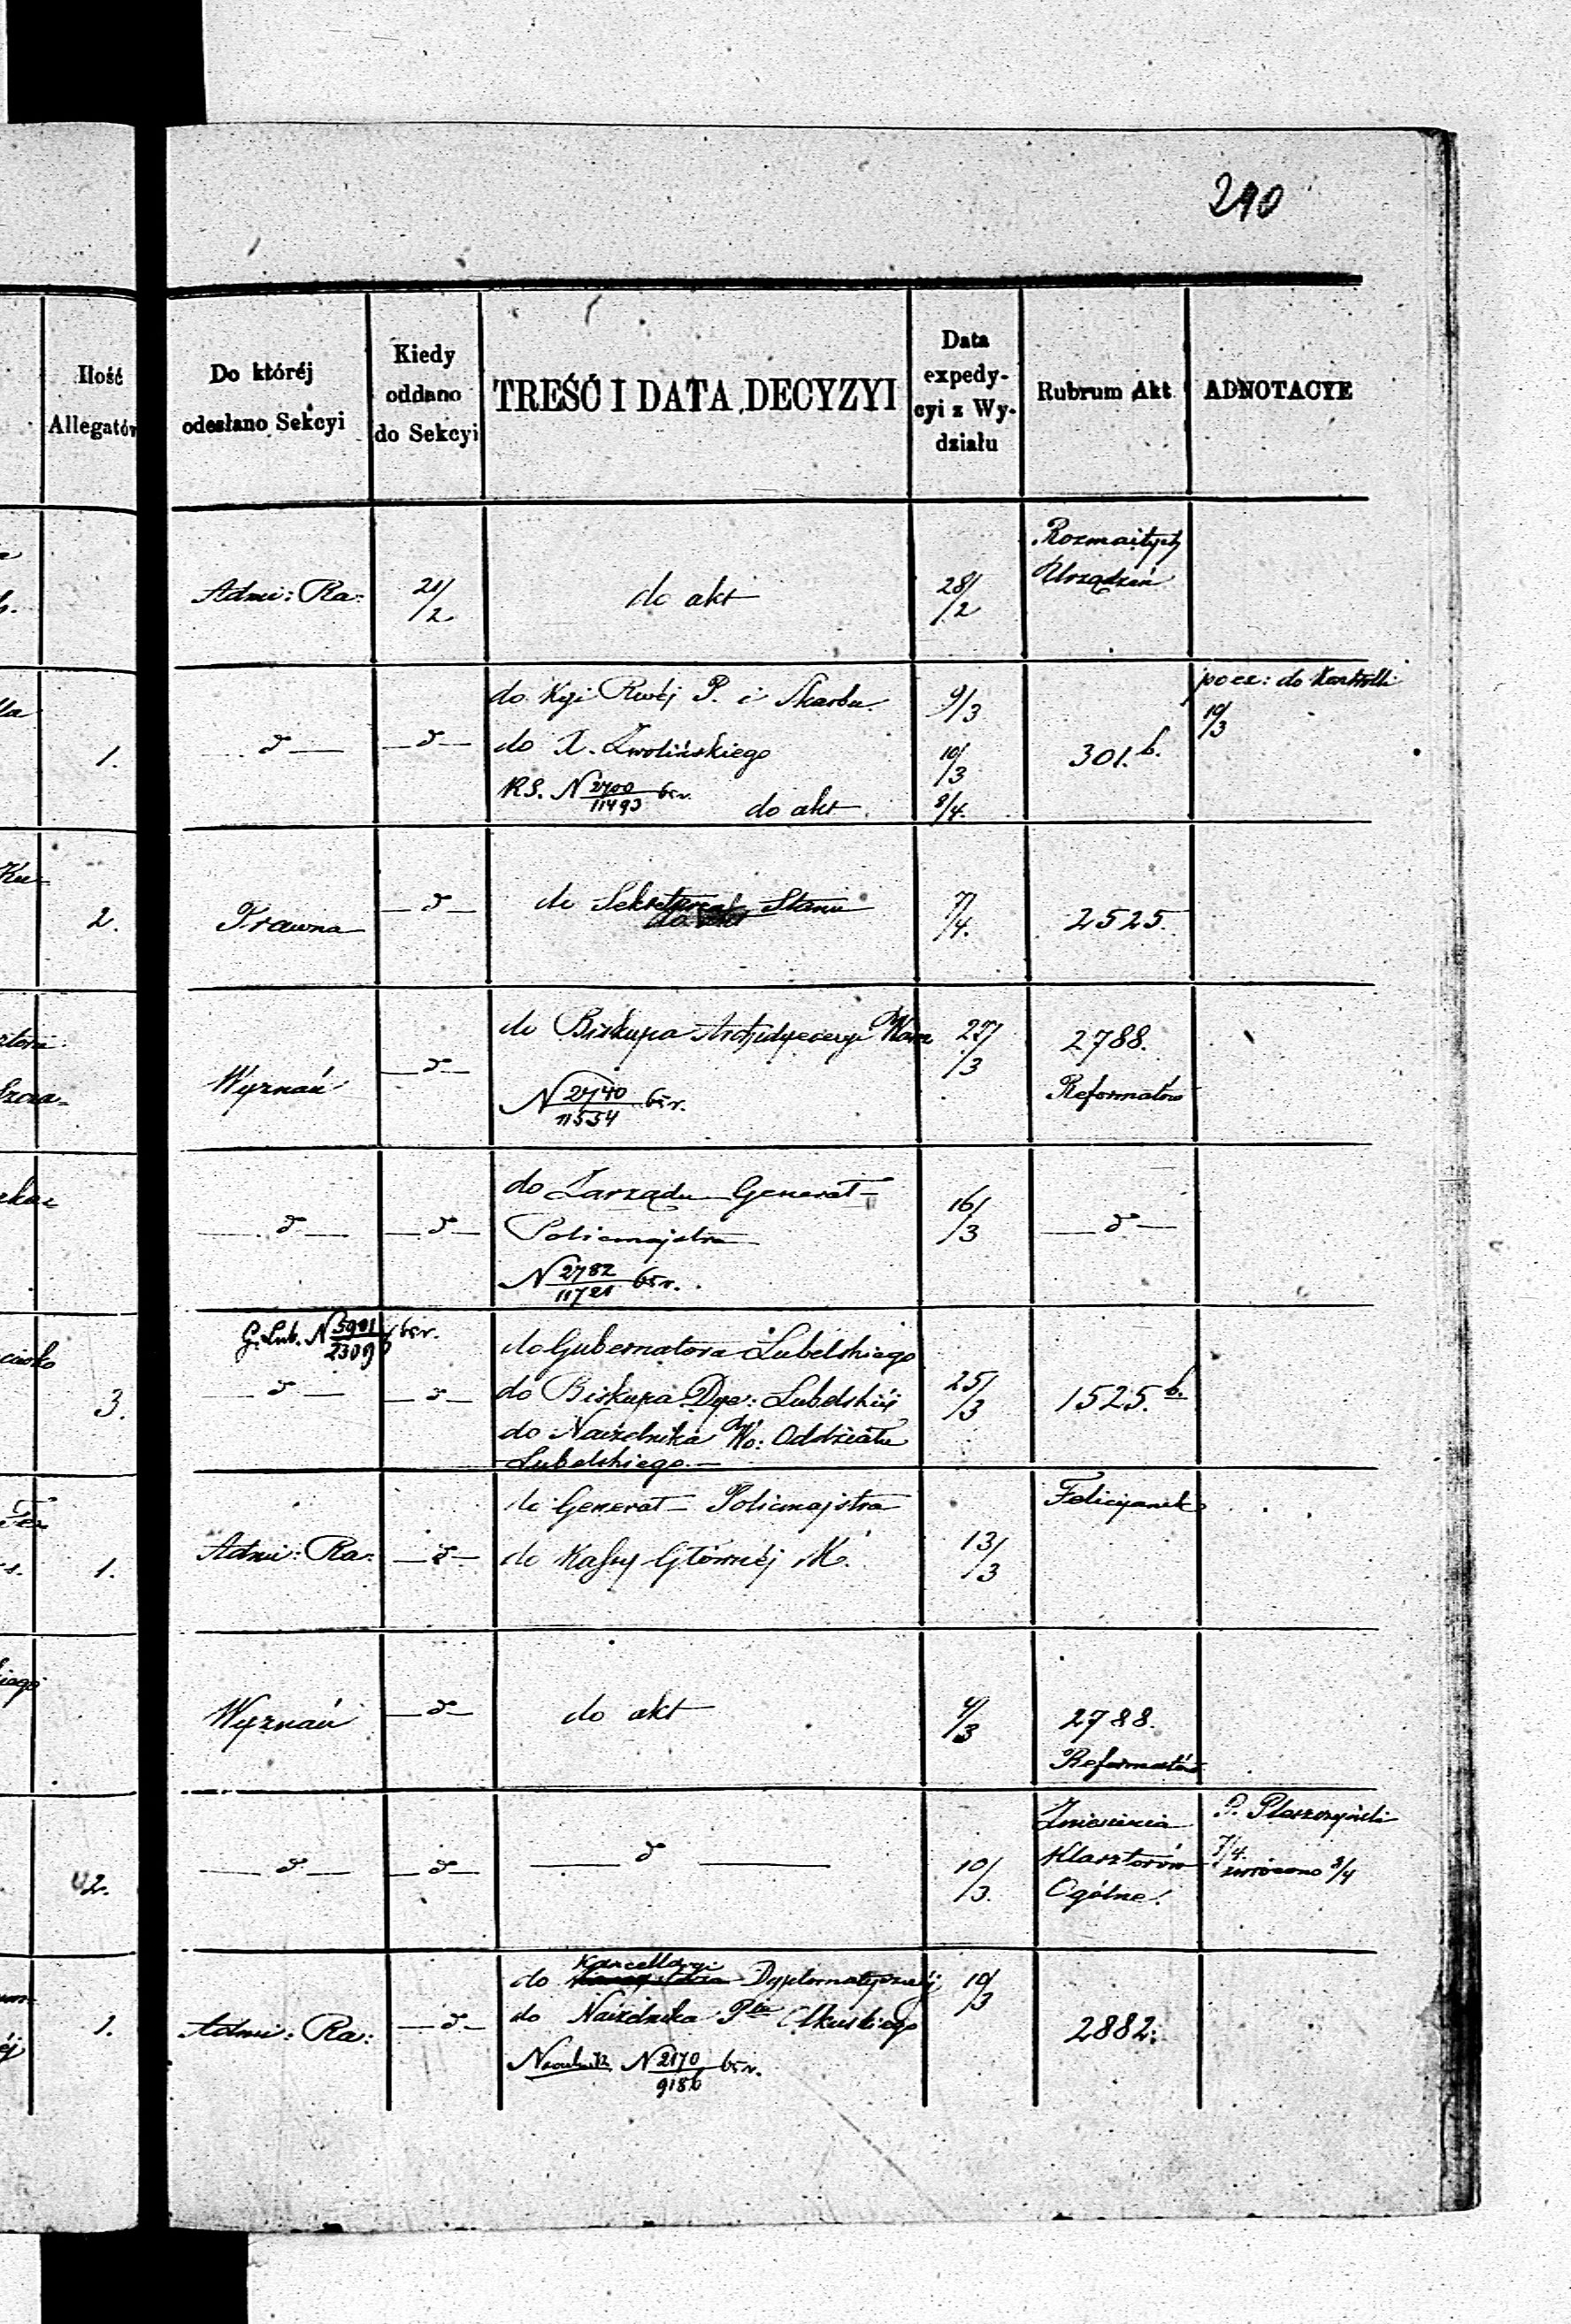 290
Ilość
Allegatów
Do któréj
odesłano Sekcyi
Kiedy
oddano
do Sekcyi
TREŚĆ I DATA DECYZYI
Data
expedy-
cyi z Wy-
działu
Rubrum Akt
ADNOTACYE
Admi: Ra:
21/2
do akt
28/2
Rozmaitych
Urządzeń
1.
— d —
— d —
do Kyi Rwéj P. i Skarbu
do X. Zwolińskiego
RS. N 2700/11493 bśr.
do akt
9/3
10/3
8/4.
301.b.
pocz: do Kontrolli
10/3
2.
Prawna
— d —
do Sekretarza Stanu
7/4.
2525.
Wyznań
— d —
do Biskupa Archidyecezyi Warsz
N 2740/11554 bśr.
27/3
2788.
Reformatów
— d —
— d —
do Zarządu Generał-
Policmajstra
N 2782/11721 bśr.
16/3
— d —
3.
G. Lub. N 5901/2309 bśr.
— d —
— d —
do Gubernatora Lubelskiego
do Biskupa Dye: Lubelskiéj
do Naczelnika Wo: Oddziału
Lubelskiego.—
25/3
1525.b.
1.
Admi: Ra:
— d —
do Generał- Policmajstra
do Kassy Głównéj K.
13/3
Felicyanek
Wyznań
— d —
do akt
4/3
2788.
Reformatów
2.
— d —
— d —
— d —
10/3.
Zniesienia
Klasztorów
Ogólne.
P.
7/4.
zwrócono 8/4
1.
Admi: Ra:
— d —
Kancellaryi
do Dyplomatycznéj
do Naczelnika Ptu Olkuskiego
N 2170/9186 bśr.
10/3
2882.